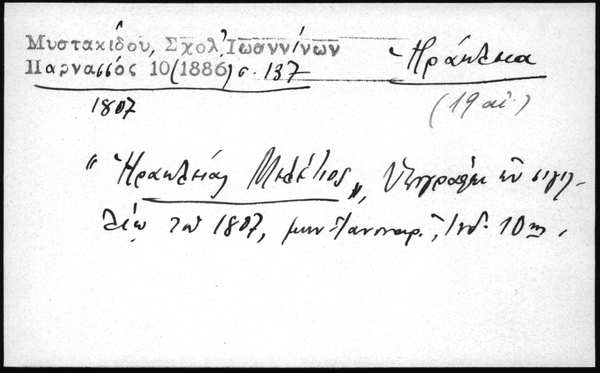 Μυστακίδου, Σχολ. Ἰωαννίνων
Παρνασσός 10 (1886) σ. 137
Ἡράκλεια
(19 αἰ.)
1807
"Ἡρακλείας Μελέτιος", Ὑπογραφὴ ἐν σιγιλ-
λίῳ τοῦ 1807, μην. Ἰανουαρ., Ἰνδ. 10ης.